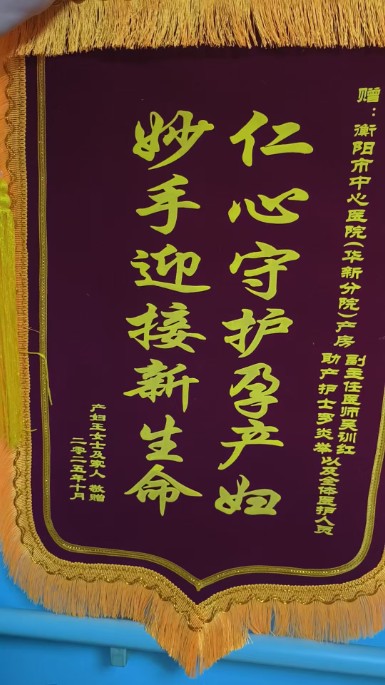 赠：衡阳市中心医院(华新分院)产房
副主任医师吴训红
助产护士罗炎翠以及全体医护人员
仁心守护孕产妇
妙手迎接新生命
产妇王女士及家人 敬赠
二零二五年十月